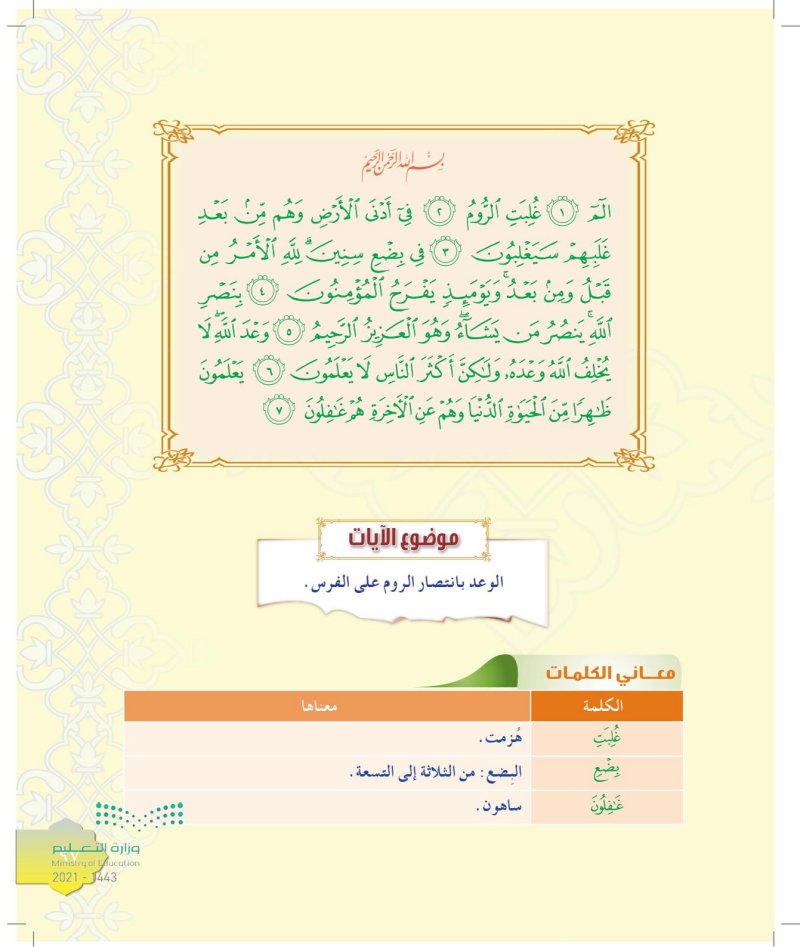 بِسْمِ اللهِ الرَّحْمَنِ الرَّحِيمِ
الٓمٓ ١ غُلِبَتِ ٱلرُّومُ ٢ فِىٓ أَدْنَى ٱلْأَرْضِ وَهُم مِّنۢ بَعْدِ
غَلَبِهِمْ سَيَغْلِبُونَ ٣ فِى بِضْعِ سِنِينَ ۗ لِلَّهِ ٱلْأَمْرُ مِن
قَبْلُ وَمِنۢ بَعْدُ ۚ وَيَوْمَئِذٍ يَفْرَحُ ٱلْمُؤْمِنُونَ ٤ بِنَصْرِ
ٱللَّهِ ۚ يَنصُرُ مَن يَشَآءُ ۖ وَهُوَ ٱلْعَزِيزُ ٱلرَّحِيمُ ٥ وَعْدَ ٱللَّهِ ۖ لَا
يُخْلِفُ ٱللَّهُ وَعْدَهُۥ وَلَٰكِنَّ أَكْثَرَ ٱلنَّاسِ لَا يَعْلَمُونَ ٦ يَعْلَمُونَ
ظَٰهِرًا مِّنَ ٱلْحَيَوٰةِ ٱلدُّنْيَا وَهُمْ عَنِ ٱلْأَخِرَةِ هُمْ غَٰفِلُونَ ٧
موضوع الآيات
الوعد بانتصار الروم على الفرس .
معـــاني الكلمـات
الكلمة معناها
غُلِبَتِ هُزمت .
بِضْعِ البِضع : من الثلاثة إلى التسعة .
غَٰفِلُونَ ساهون .
وزارة التعـــليم
٩٧
Ministry of Education
2021 - 1443